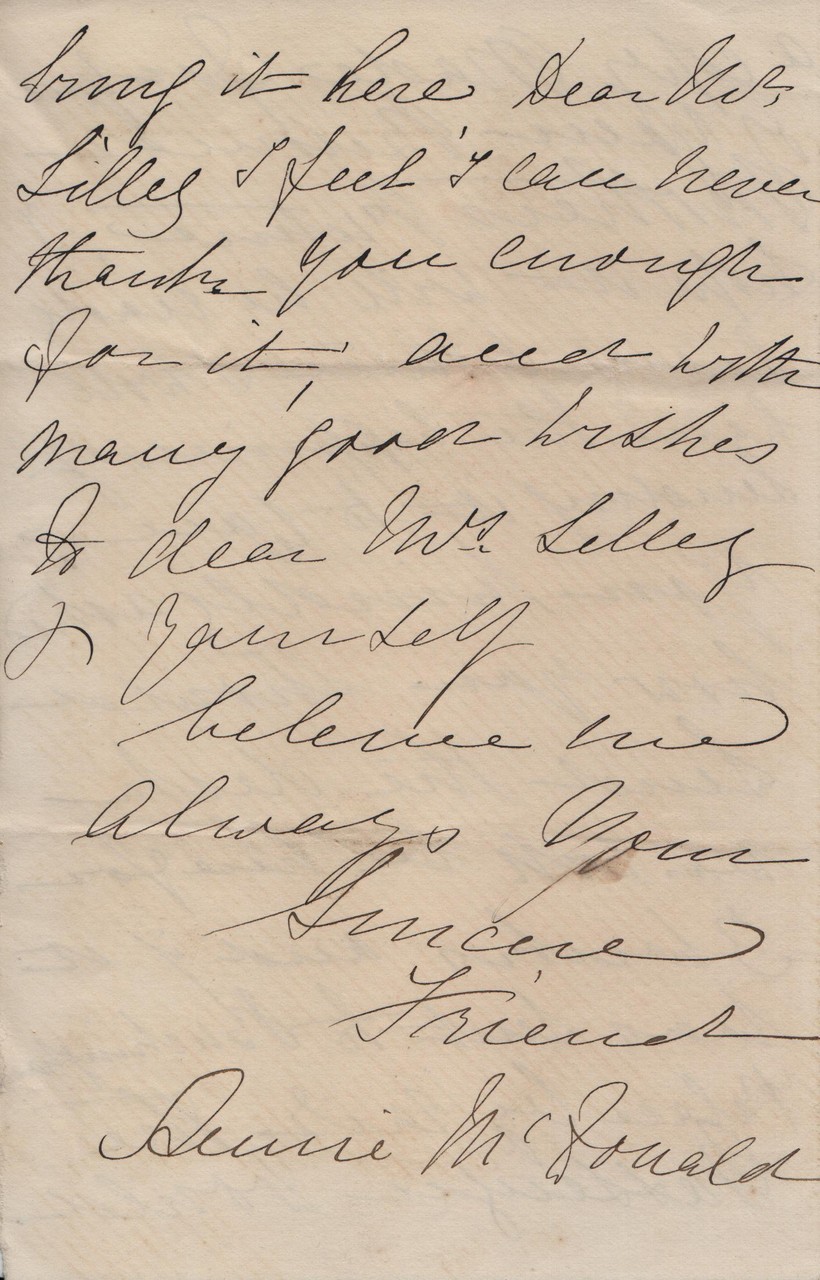 bring it here Dear Mr.
Lilley I feel I can never
thank you enough
for it, and with
many good wishes
to dear Mrs. Lilley
& yourself
believe me
always your
Sincere
Friend
Annie McDonald